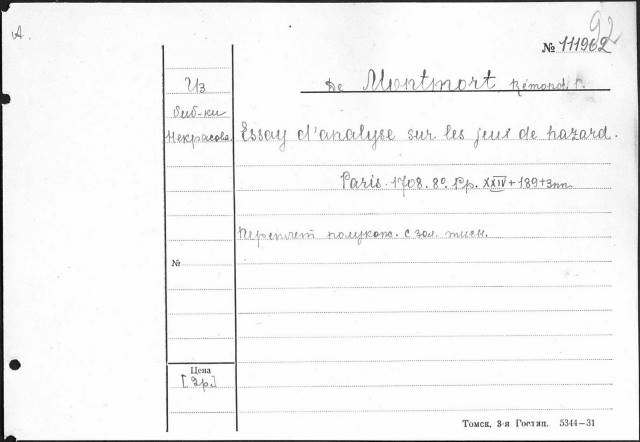 A.
92
№ 111962
Из
биб-ки
Некрасова.
De Montmort, Rémond P.
Essay d'analyse sur les jeux de hazard.
Paris. 1708. 8º. Pp. XXIV + 189 + 3пп
Переплет полукож. с зол. тисн.
№
Цена
[2р.]
Томск, 3-я Гостип. 5344—31